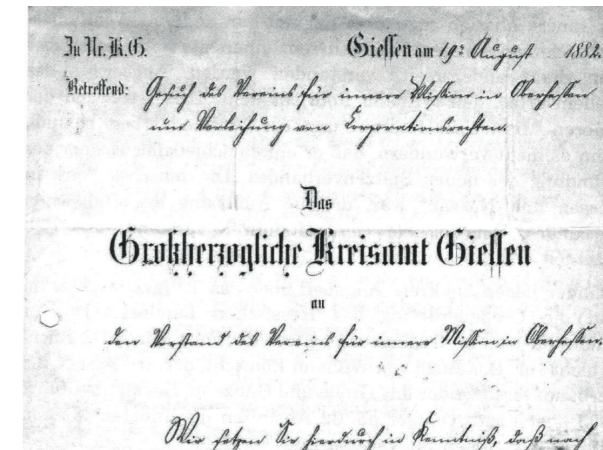 Zu Nr. K.G. Giessen am 19. August 1882.
Betreffend: Gesuch des Vereins für innere Mission in Oberhessen
um Verleihung von Corporationsrechten.
Das
Großherzogliche Kreisamt Giessen
an
den Vorstand des Vereins für innere Mission in Oberhessen.
Wir setzen Sie hierdurch in Kenntniß, daß nach